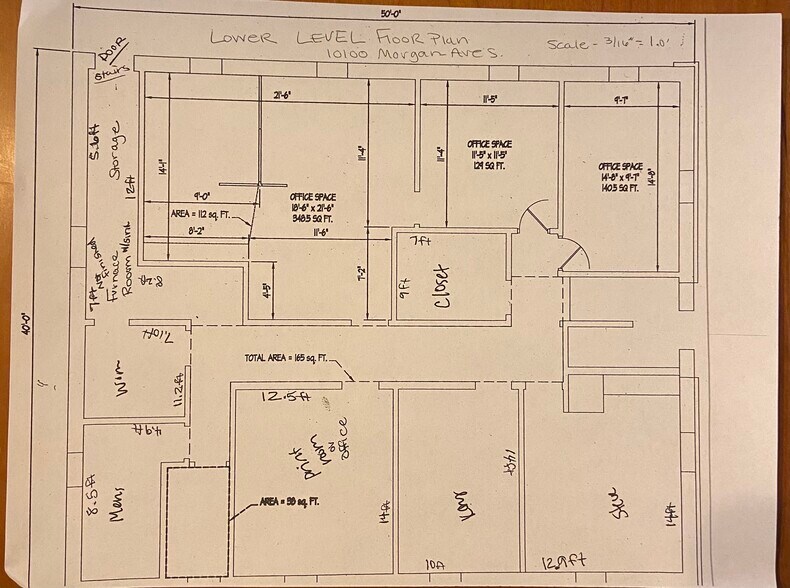 50'-0"
LOWER LEVEL Floor Plan
10100 Morgan Ave S.
Scale - 3/16" = 1.0'
DOOR
Stairs
21'-6"
11'-5"
9'-7"
5.6ft
Storage
12ft
14'-1"
11'-4"
11'-4"
14'-8"
OFFICE SPACE
11'-5" x 11'-5"
129 SQ FT.
OFFICE SPACE
14'-8" x 9'-7"
140.5 SQ FT.
OFFICE SPACE
18'-6" x 21'-6"
348.5 SQ FT.
9'-0"
AREA = 112 sq. FT.
8'-2"
11'-6"
7ft
Not finished
Furnace
Room w/sink
7ft
9ft
Closet
4'-5"
7'-2"
40'-0"
7.10ft
Wom
11.2ft
TOTAL AREA = 165 sq. FT.
12.5ft
print
room
or
office
7.9ft
8.5ft
Mens
AREA = 58 sq. FT.
14ft
14ft
10ft
14ft
12.9ft